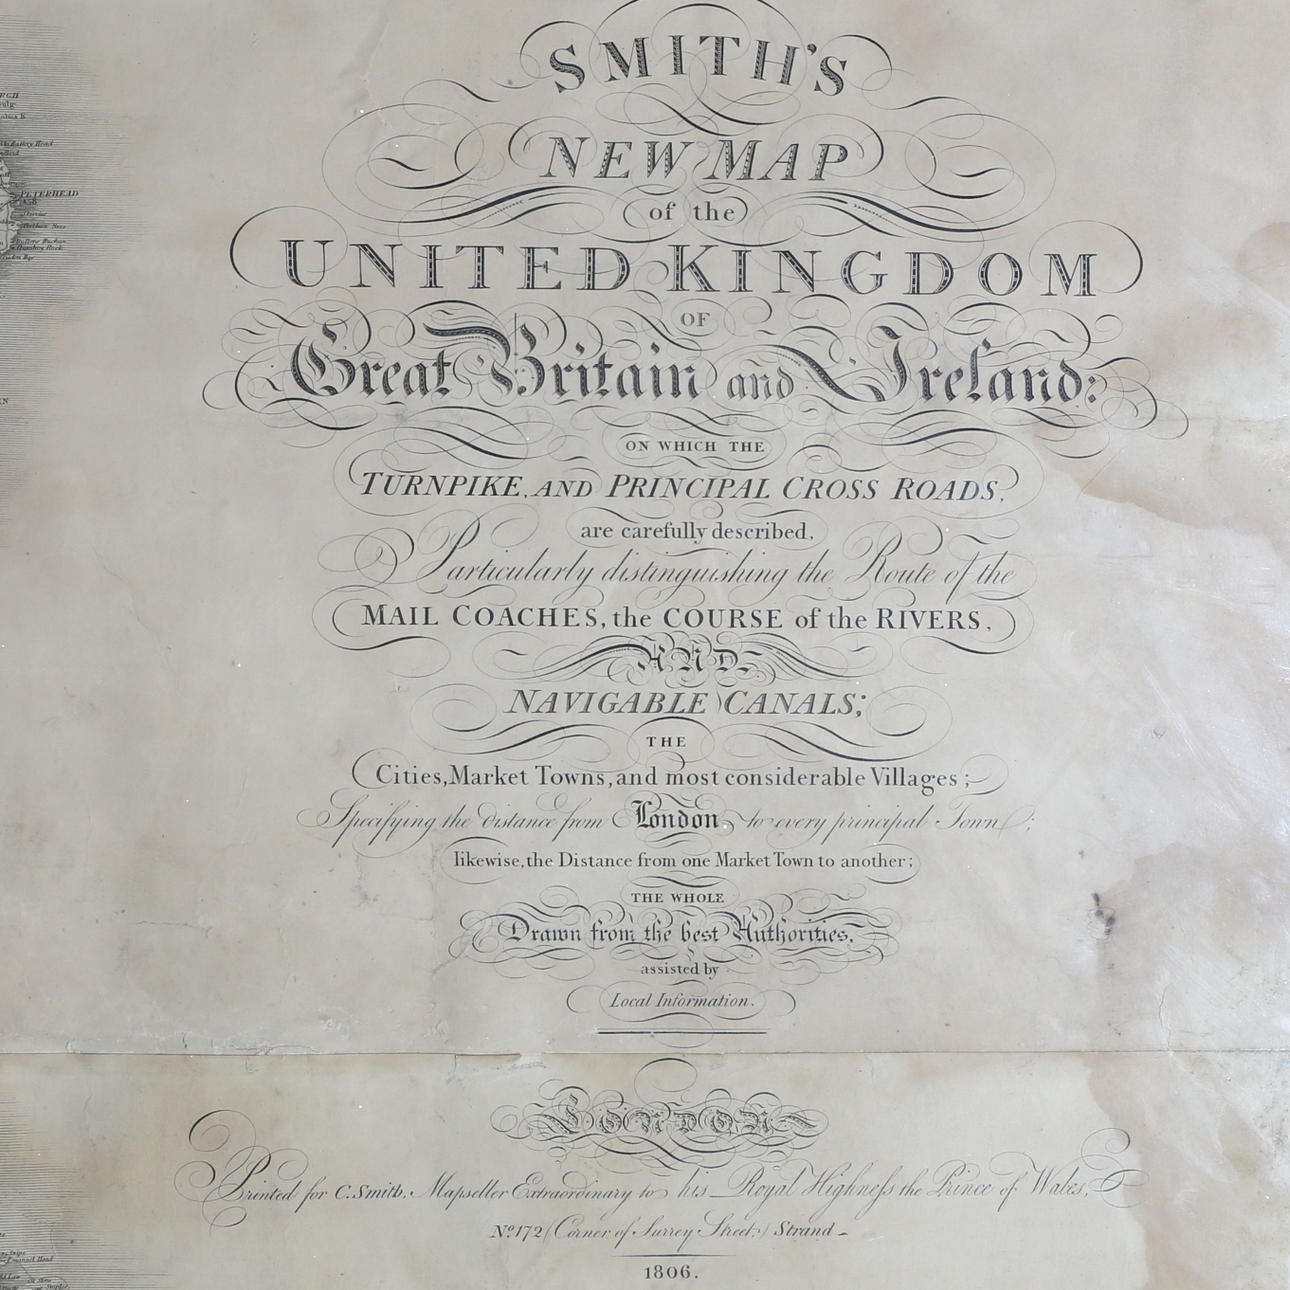 SMITH'S
NEW MAP
of the
UNITED KINGDOM
OF
Great Britain and Ireland:
ON WHICH THE
TURNPIKE, AND PRINCIPAL CROSS ROADS,
are carefully described,
Particularly distinguishing the Route of the
MAIL COACHES, the COURSE of the RIVERS,
AND
NAVIGABLE CANALS;
THE
Cities, Market Towns, and most considerable Villages;
Specifying the distance from London to every principal Town;
likewise, the Distance from one Market Town to another;
THE WHOLE
Drawn from the best Authorities,
assisted by
Local Information.
LONDON
Printed for C. Smith. Mapseller Extraordinary to his Royal Highneſs the Prince of Wales,
No. 172 (Corner of Surrey Street,) Strand
1806.
PETERHEAD